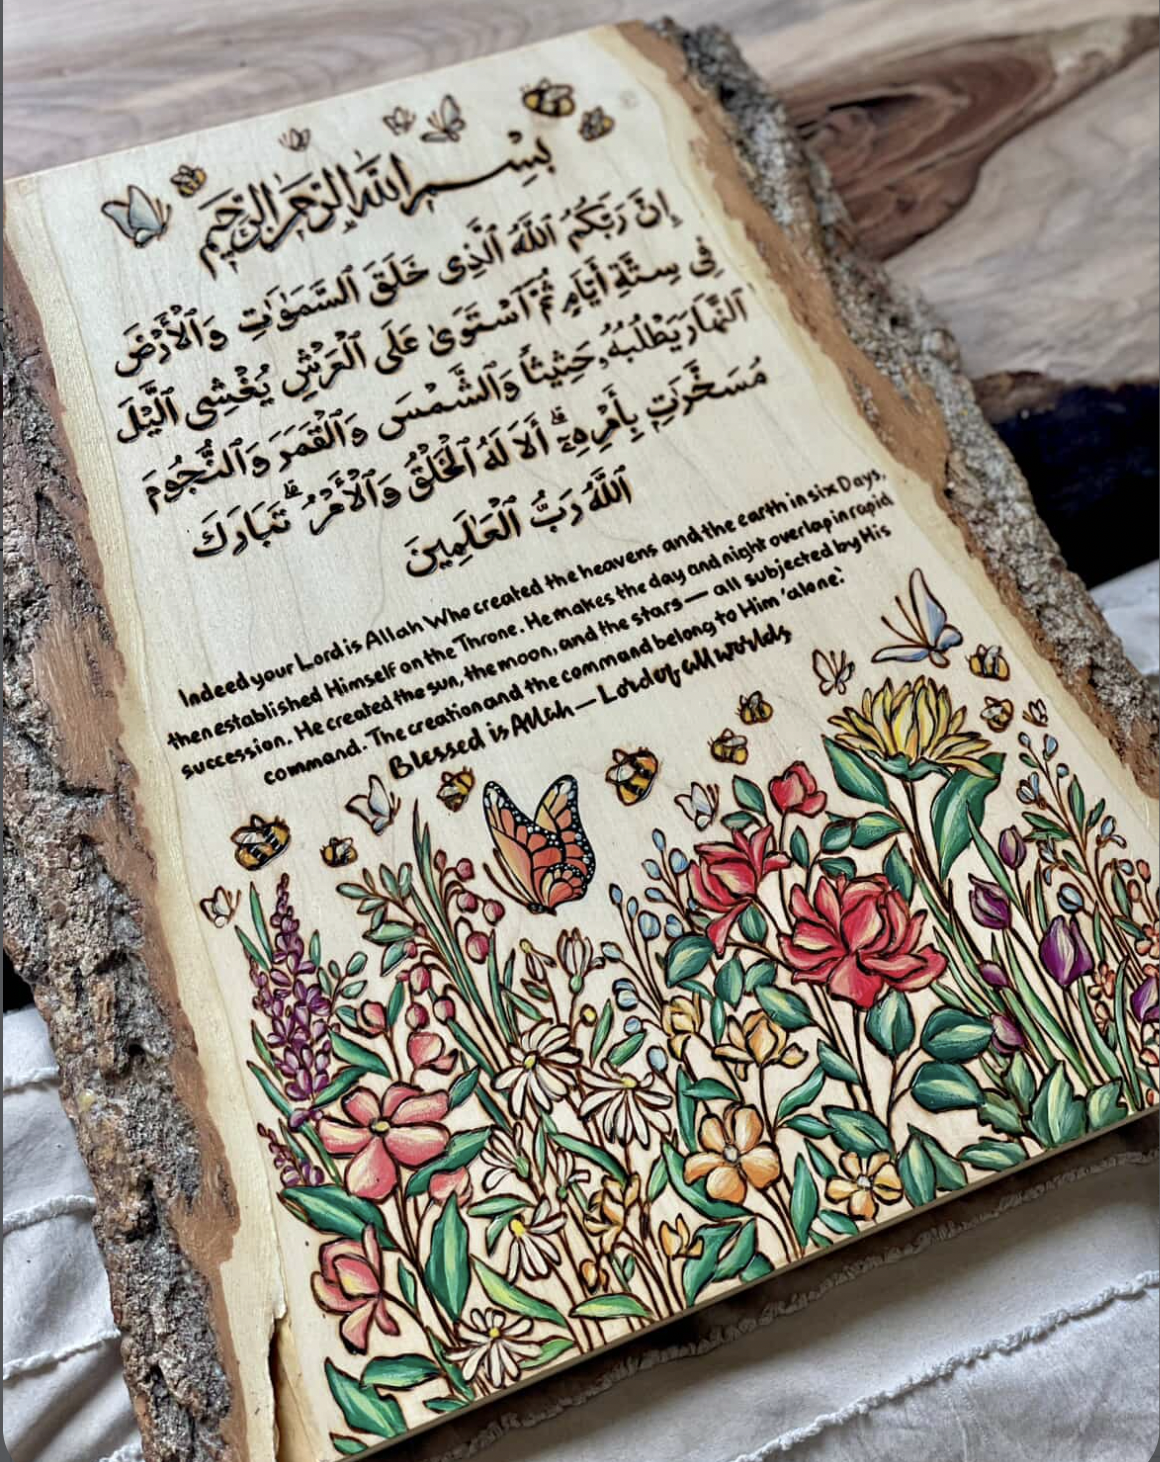 بِسْمِ اللَّهِ الرَّحْمَٰنِ الرَّحِيمِ
إِنَّ رَبَّكُمُ ٱللَّهُ ٱلَّذِى خَلَقَ ٱلسَّمَٰوَٰتِ وَٱلْأَرْضَ
فِى سِتَّةِ أَيَّامٍ ثُمَّ ٱسْتَوَىٰ عَلَى ٱلْعَرْشِ يُغْشِى ٱلَّيْلَ
ٱلنَّهَارَ يَطْلُبُهُۥ حَثِيثًا وَٱلشَّمْسَ وَٱلْقَمَرَ وَٱلنُّجُومَ
مُسَخَّرَٰتٍۭ بِأَمْرِهِۦٓ ۗ أَلَا لَهُ ٱلْخَلْقُ وَٱلْأَمْرُ ۗ تَبَارَكَ
ٱللَّهُ رَبُّ ٱلْعَٰلَمِينَ
Indeed your Lord is Allah Who created the heavens and the earth in six Days,
then established Himself on the Throne. He makes the day and night overlap in rapid
succession. He created the sun, the moon, and the stars — all subjected by His
command. The creation and the command belong to Him 'alone.'
Blessed is Allah — Lord of all worlds